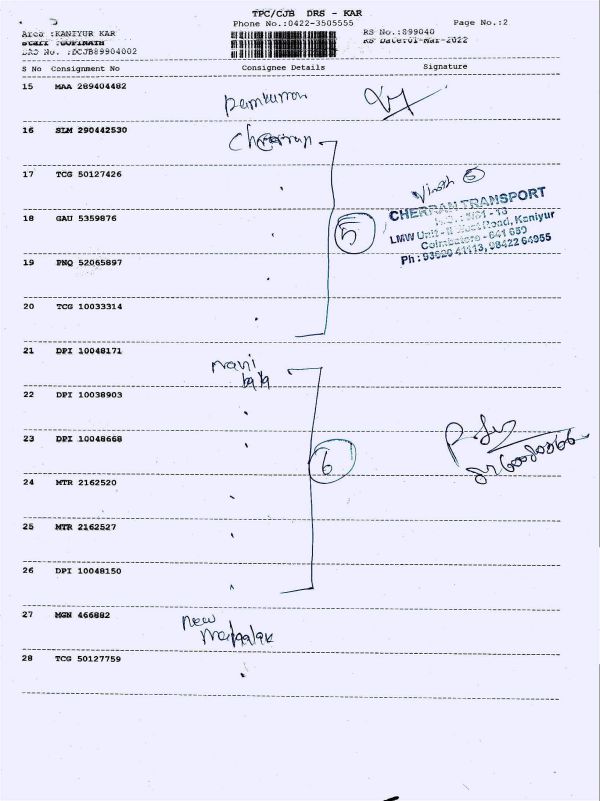 TPC/CJB DRS - KAR
Phone No.:0422-3505555
Page No.:2
Area :KANIYUR KAR
RS No.:899040
Staff :GOPINATH
RS Date:01-Mar-2022
DRS No. :DCJB89904002
S No Consignment No Consignee Details Signature
15 MAA 289404482
16 SLM 290442530
Cherran
17 TCG 50127426
Vinoth 5
CHERRAN TRANSPORT
18 GAU 5359876
5
LMW Unit - II Road, Kaniyur
Coimbatore - 641 659
Ph : 93620 41113, 98422 64955
19 PNQ 52065897
20 TCG 10033314
21 DPI 10048171
Mani
22 DPI 10038903
23 DPI 10048668
6
24 MTR 2162520
25 MTR 2162527
26 DPI 10048150
27 MGN 466882
New
28 TCG 50127759